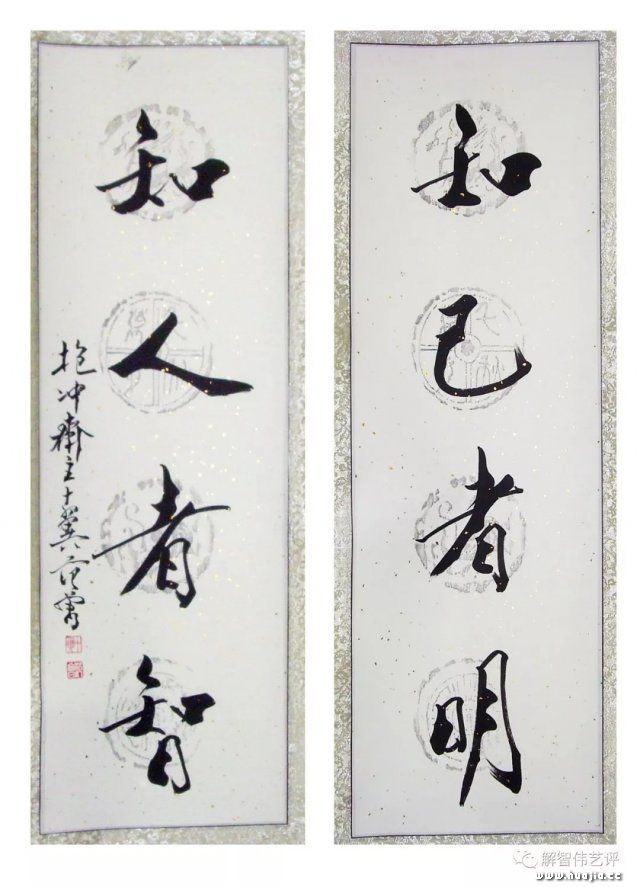 知己者明
知人者智
抱冲斋主十翼范曾
解智伟艺评
www.huajia.cc